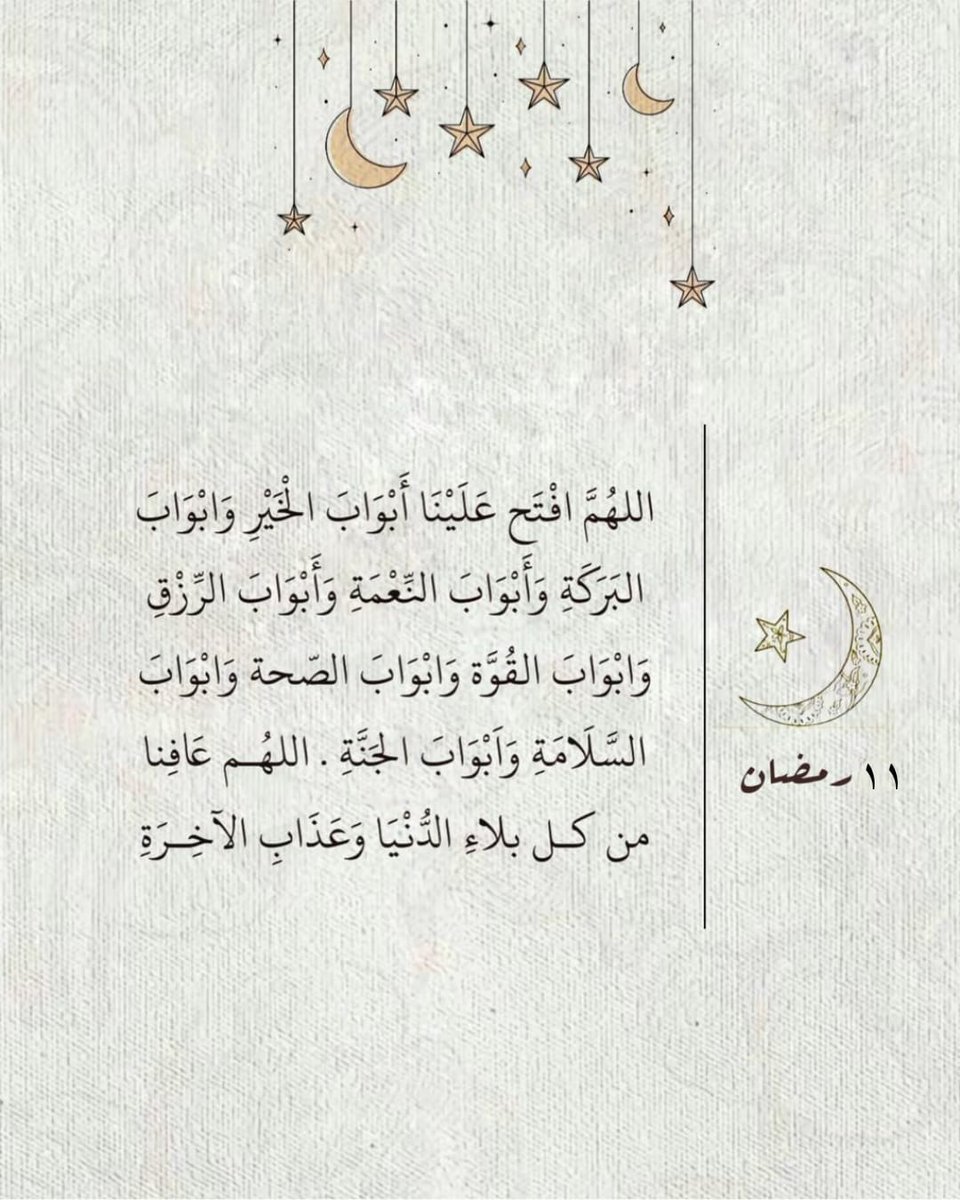 اللهُمَّ افْتَح عَلَيْنَا أَبْوَابَ الْخَيْرِ وَابْوَابَ
البَرَكَةِ وَأَبْوَابَ النِّعْمَةِ وَأَبْوَابَ الرِّزْقِ
وَابْوَابَ القُوَّة وَابْوَابَ الصّحة وَابْوَابَ
السَّلَامَةِ وَاَبْوَابَ الجَنَّةِ . اللهُـم عَافِنا
من كـل بلاءِ الدُّنْيَا وَعَذَابِ الآخِـرَةِ
١١ رمضان